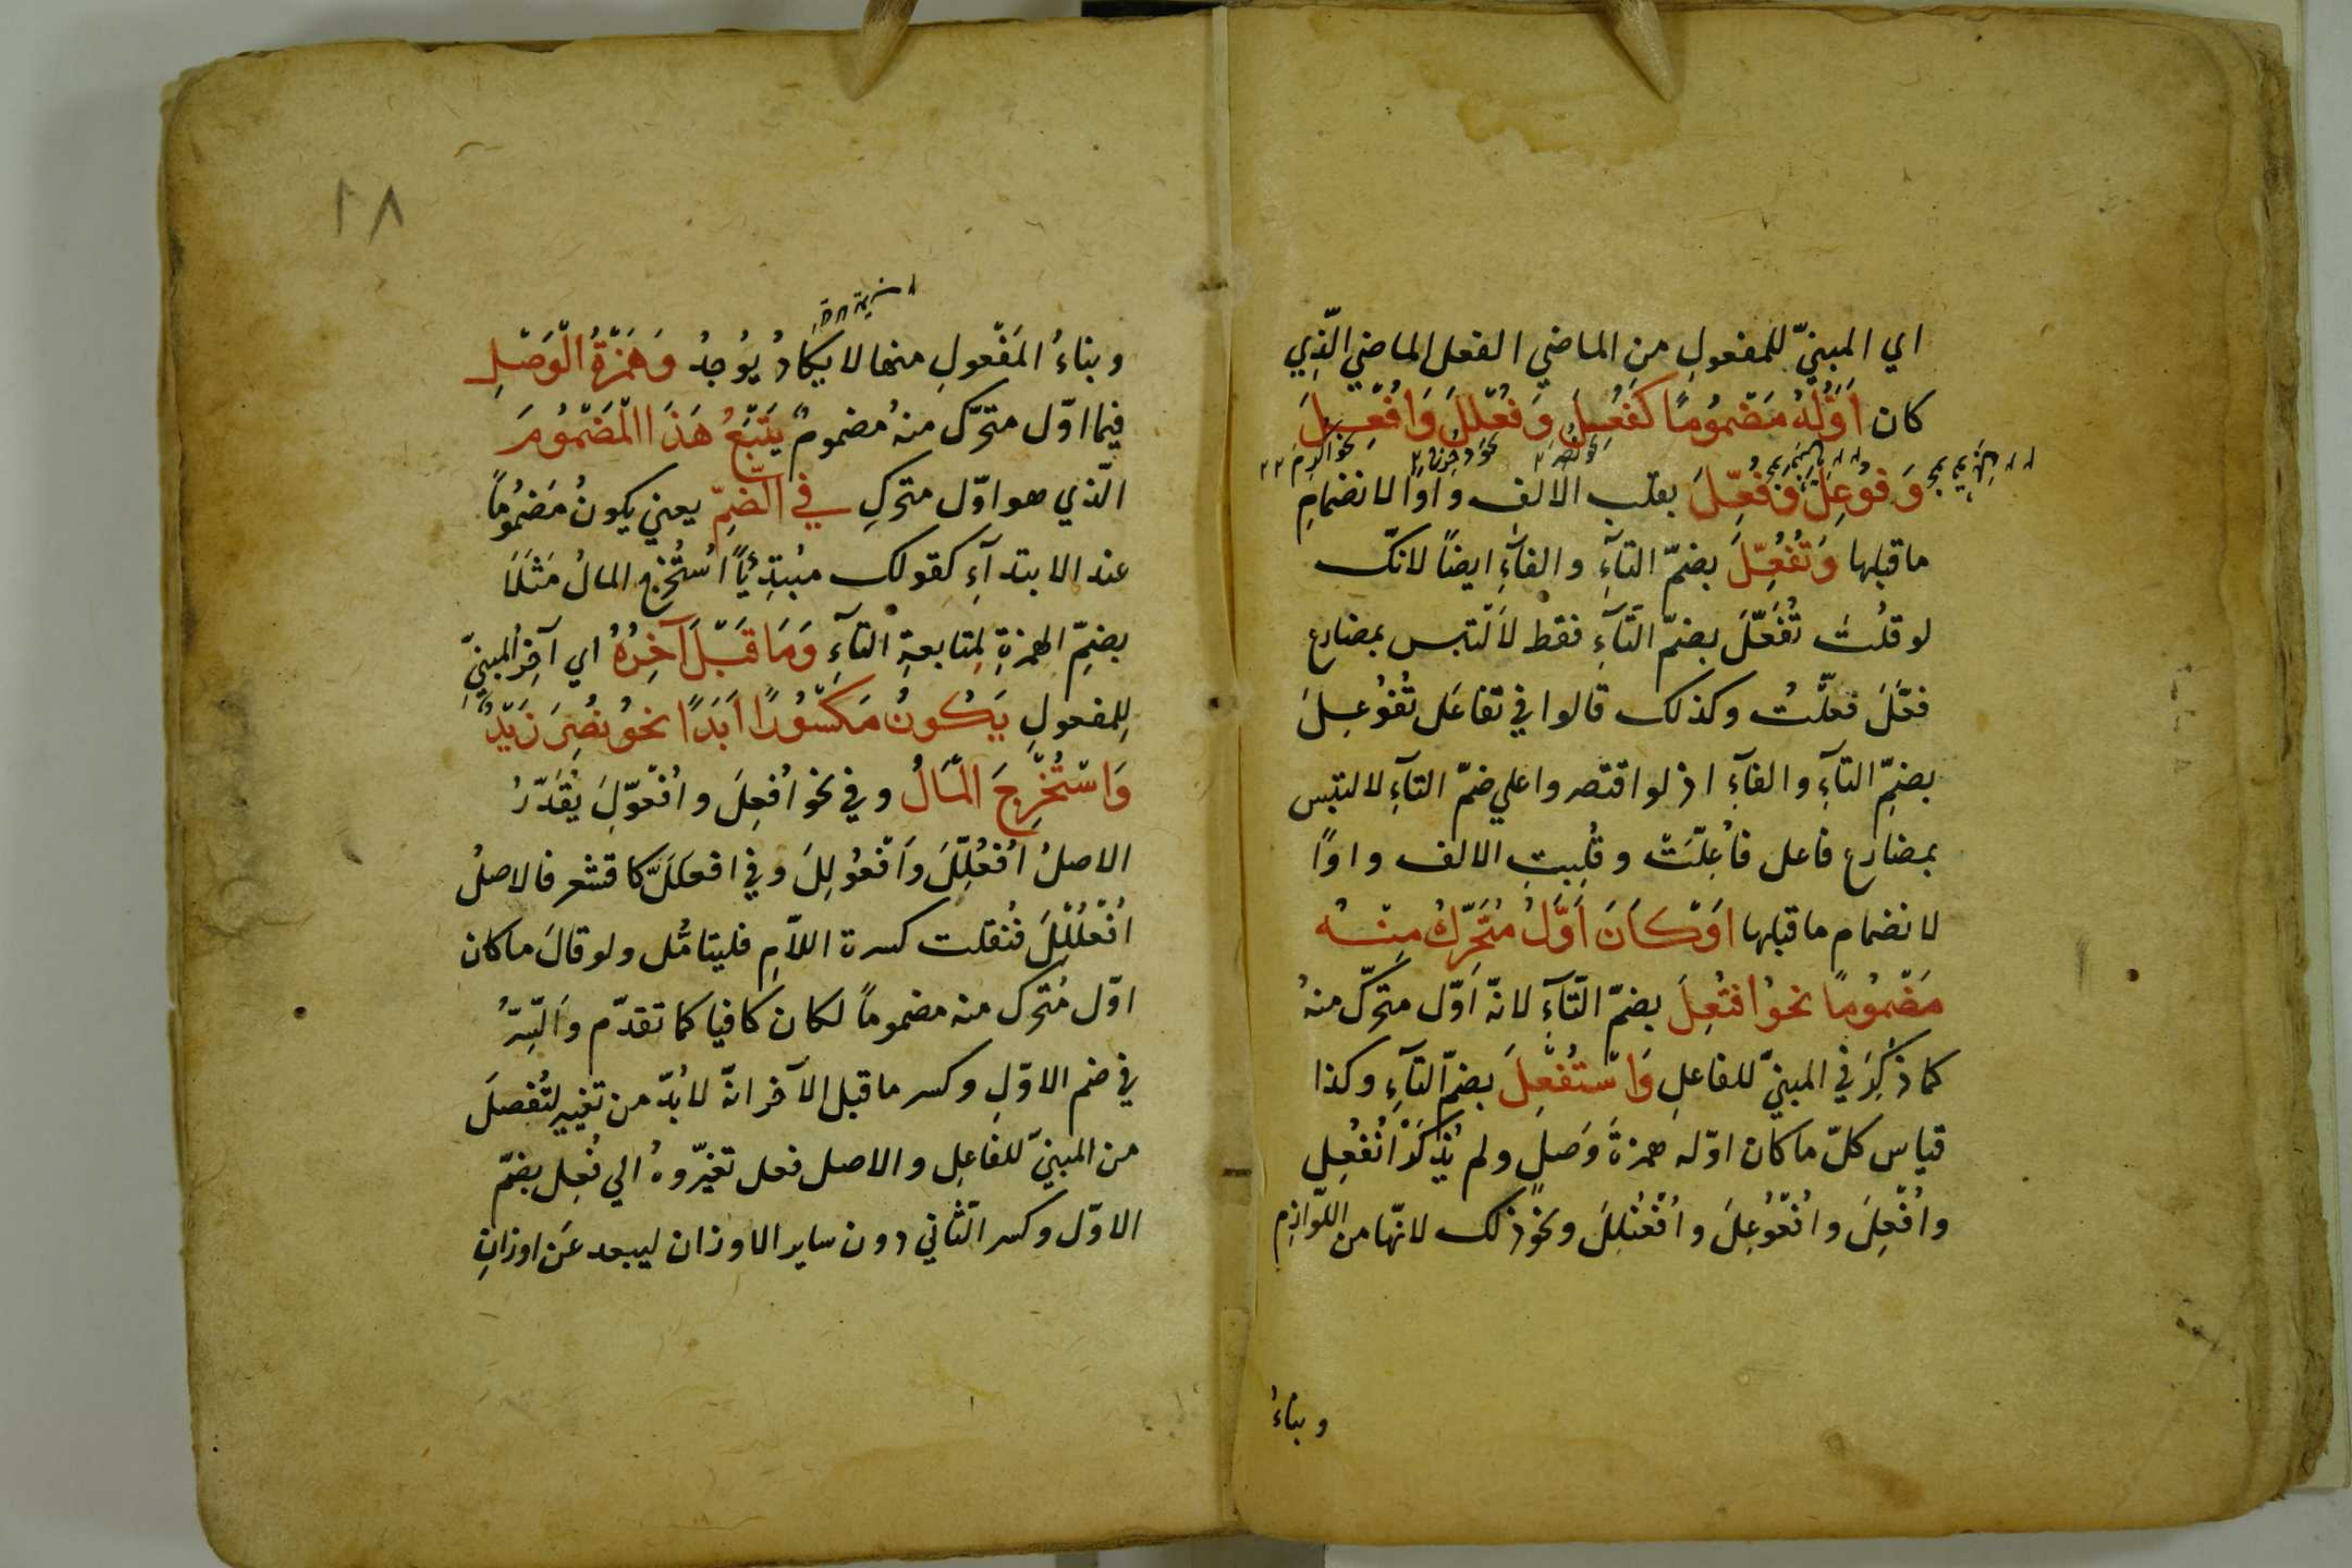 اي المبنيّ للمفعولِ من الماضي الفعل الماضي الّذِي
كان اَوَّلُهُ مَضْمُومًا كَفُعِلَ وَفُعْلِلَ وَاُفْعِلَ
نحو نُصِرَ نحو دُحْرِجَ نحو اُكْرِمَ
وَفُوْعِلَ وَفُعِّلَ بقلبِ الالف واوًا لانضمامِ
ماقبلها وَتُفُعِّلَ بضمّ التآءِ والفآءِ ايضًا لانّك
لو قلتَ تُفَعِّلَ بضمّ التّآءِ فقط لاَلْتبس بمضارع
فعّلَ فعّلتُ وكذلك قالوا في تفاعَل تُفُوْعِلَ
بضمِّ التآءِ والفآءِ اذ لو اقتصروا علي ضمّ التآءِ لالتبس
بمضارع فاعل فاُعِلَتْ وقُلِبتِ الالف واوًا
لانضمام ماقبلها اَوْ كَانَ اَوَّلُ مُتَحَرِّكٍ مِنْهُ
مَضْمُومًا نحوُ اُفْتُعِلَ بضمّ التّآءِ لانّه اَوّل متحرّك منهُ
كما ذُكِرَ في المبنيّ للفاعلِ وَاسْتُفْعِلَ بضمّ التآءِ وكذا
قياس كلّ ماكان اوّله همزةَ وَصلٍ ولم يُذْكَرْ اُنْفُعِل
واُفْعِلَ واُفْعُوْعِلَ واُفْعُنْلِلَ ونحوَ ذلك لانّها من اللّوازِم
وبناءُ
١٨
وبناءُ المَفْعولِ منها لا يَكَادُ يُوْجدُ وَهَمْزَةُ الْوَصْلِ
فيما اوّل متحرّك منهُ مضمومٌ يَتْبَعُ هَذَا الْمَضْمُومَ
الّذي هو اوّل متحركِ في الضَّمِّ يعني يكونُ مَضْمُومًا
عند الابتدآءِ كقولك مبتدِئًا اُسْتُخْرِج المالُ مَثَلًا
بضمِّ الهمزةِ لِمتابعةِ التآءِ وَمَا قَبْلَ آخِرِهُ اي آخرُ المبنيِّ
لِلمفعولِ يَكُونُ مَكْسُوْرًا اَبَدًا نحوُ نُصِرَ زَيْدٌ
وَاسْتُخْرِجَ الْمَالُ وفي نحو اُفعِلَ واُفْعُوِّلَ يُقَدّرُ
الاصلُ اُفْعُلِلَ وَاُفْعُوْلِلَ وفي افعلَلَّ كاقشعر فالاصلُ
اُفْعُلْلِلَ فنُقلت كسرة اللاّمِ فليتامّل ولو قالَ ماكان
اوّل مُتحرك منه مضمومًا لكان كافيا كما تقدّم وَالسِّرُّ
في ضم الاوّلِ وكسر ماقبل الآخر انّه لابُدّ من تغيير لتُفْصلَ
من المبنيّ للفَاعِل والاصل فعل تغيّروهُ الي فُعِل بضمّ
الاوّل وكسر الثّاني دون ساير الاوزان ليبعد عَن اوزانِ